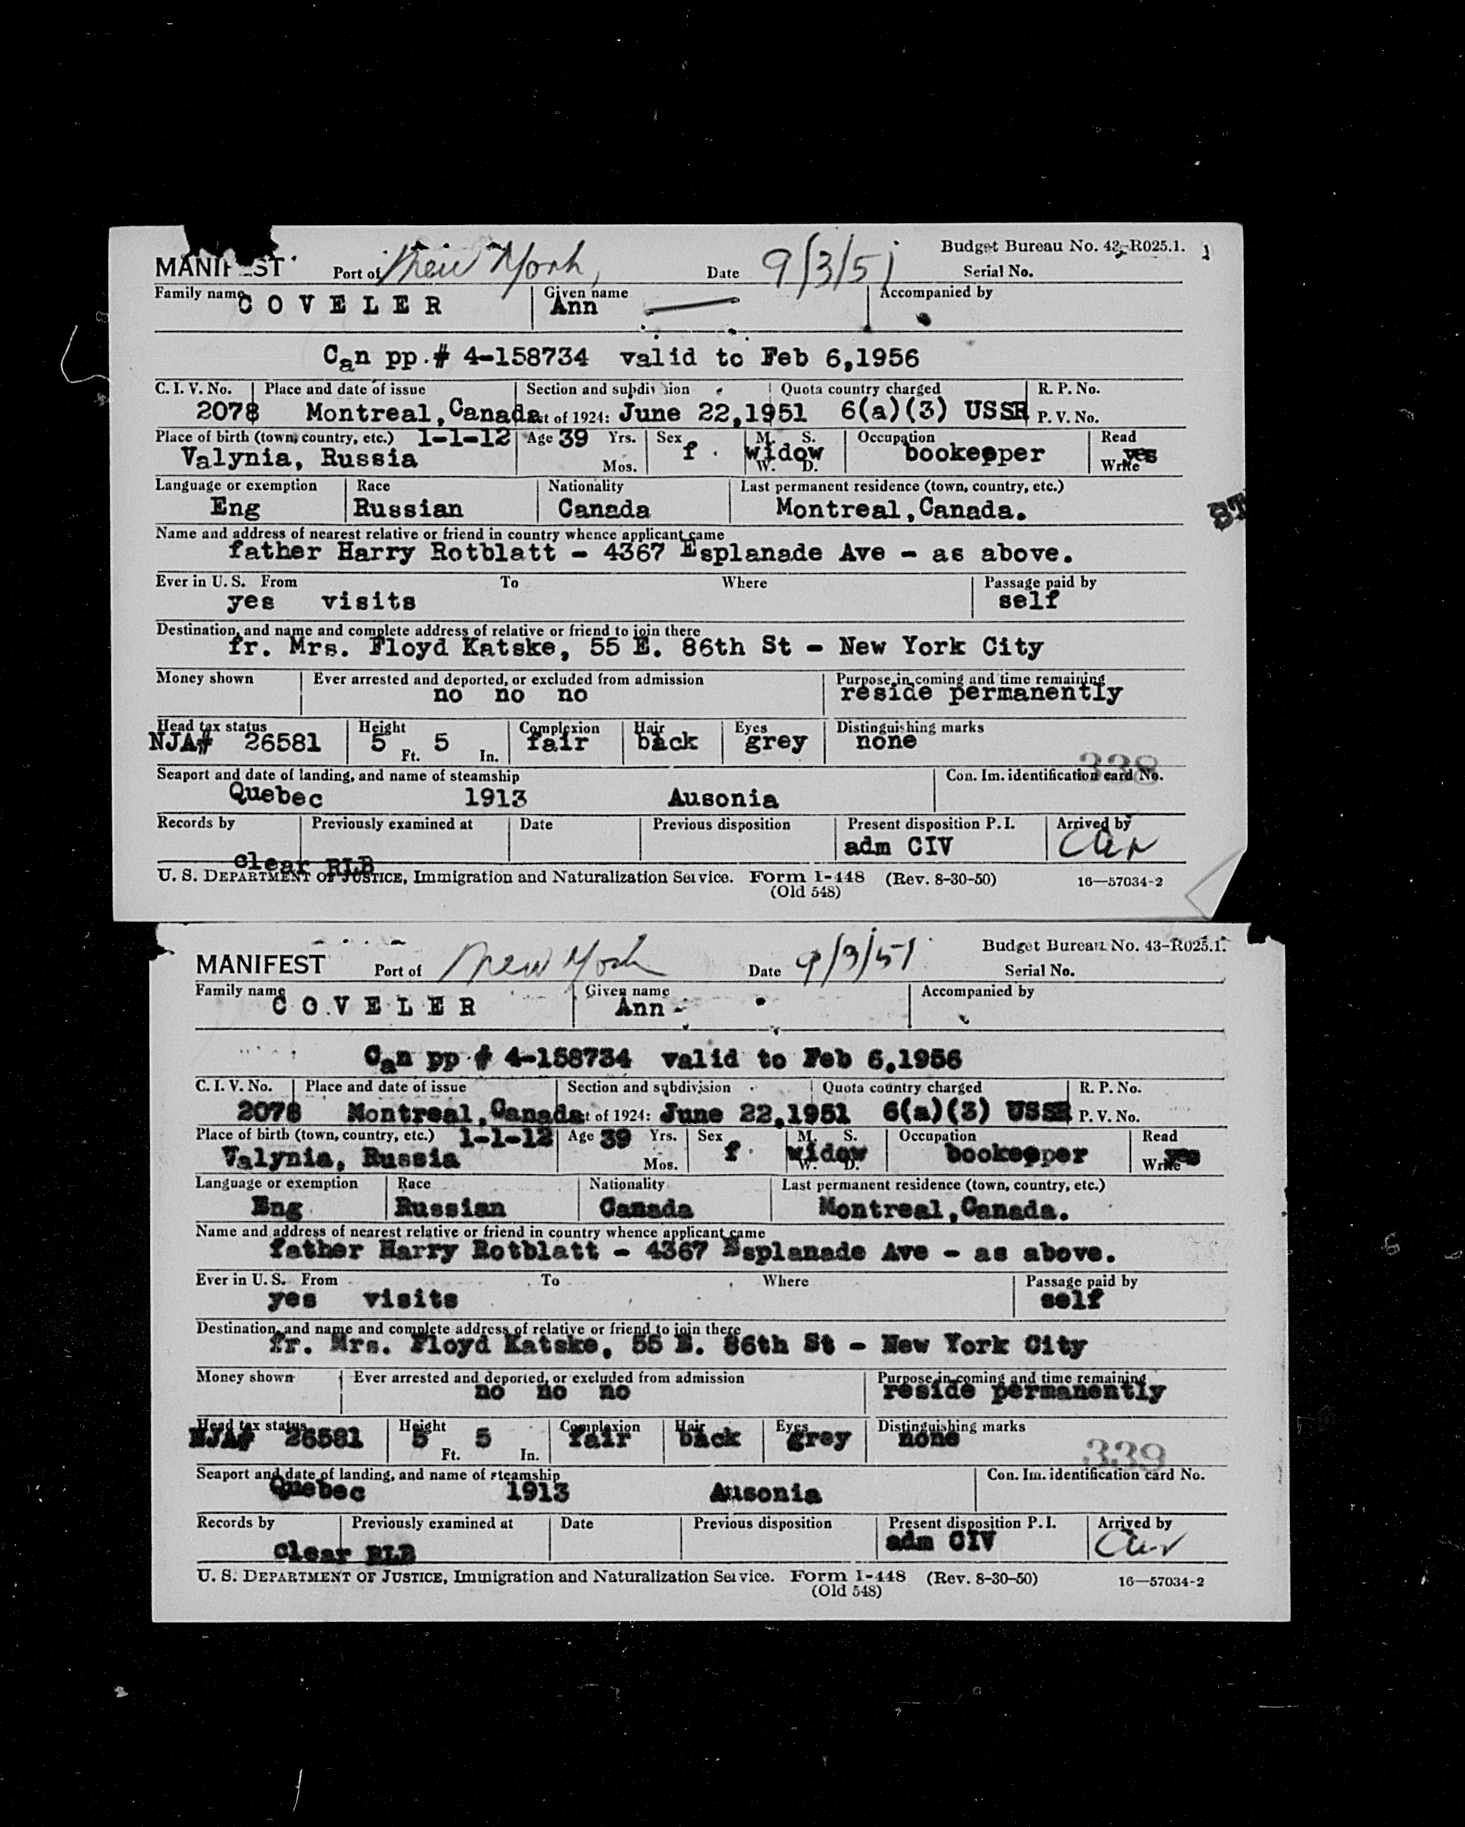 Budget Bureau No. 43-R025.1.
MANIFEST Port of New York, Date 9/3/51 Serial No.
Family name COVELER Given name Ann Accompanied by
Can pp.# 4-158734 valid to Feb 6,1956
C. I. V. No. Place and date of issue Section and subdivision Quota country charged R. P. No.
2078 Montreal,Canada of 1924: June 22,1951 6(a)(3) USSR P. V. No.
Place of birth (town, country, etc.) 1-1-12 Age 39 Yrs. Sex M. S. Occupation Read
Valynia, Russia Mos. f widow W. D. bookeeper Write yes
Language or exemption Race Nationality Last permanent residence (town, country, etc.)
Eng Russian Canada Montreal,Canada.
ST
Name and address of nearest relative or friend in country whence applicant came
father Harry Rotblatt - 4367 Esplanade Ave - as above.
Ever in U. S. From To Where Passage paid by
yes visits self
Destination, and name and complete address of relative or friend to join there
fr. Mrs. Floyd Katske, 55 E. 86th St - New York City
Money shown Ever arrested and deported, or excluded from admission Purpose in coming and time remaining
no no no reside permanently
Head tax status Height Complexion Hair Eyes Distinguishing marks
NJA# 26581 5 Ft. 5 In. fair back grey none
338
Seaport and date of landing, and name of steamship Con. Im. identification card No.
Quebec 1913 Ausonia
Records by Previously examined at Date Previous disposition Present disposition P. I. Arrived by
adm CIV Car
clear RLB
U. S. DEPARTMENT OF JUSTICE, Immigration and Naturalization Service. Form I-448 (Rev. 8-30-50) 16—57034-2
(Old 548)
Budget Bureau No. 43-R025.1.
MANIFEST Port of New York Date 9/3/51 Serial No.
Family name COVELER Given name Ann - Accompanied by
Can pp # 4-158734 valid to Feb 6,1956
C. I. V. No. Place and date of issue Section and subdivision Quota country charged R. P. No.
2078 Montreal,Canada of 1924: June 22,1951 6(a)(3) USSR P. V. No.
Place of birth (town, country, etc.) 1-1-12 Age 39 Yrs. Sex M. S. Occupation Read
Valynia, Russia Mos. f widow W. D. bookeeper Write yes
Language or exemption Race Nationality Last permanent residence (town, country, etc.)
Eng Russian Canada Montreal,Canada.
Name and address of nearest relative or friend in country whence applicant came
father Harry Rotblatt - 4367 Esplanade Ave - as above.
Ever in U. S. From To Where Passage paid by
yes visits self
Destination, and name and complete address of relative or friend to join there
fr. Mrs. Floyd Katske, 55 E. 86th St - New York City
Money shown Ever arrested and deported, or excluded from admission Purpose in coming and time remaining
no no no reside permanently
Head tax status Height Complexion Hair Eyes Distinguishing marks
NJA# 26581 5 Ft. 5 In. fair back grey none
339
Seaport and date of landing, and name of steamship Con. Im. identification card No.
Quebec 1913 Ausonia
Records by Previously examined at Date Previous disposition Present disposition P. I. Arrived by
clear RLB adm CIV Car
U. S. DEPARTMENT OF JUSTICE, Immigration and Naturalization Service. Form I-448 (Rev. 8-30-50) 16—57034-2
(Old 548)